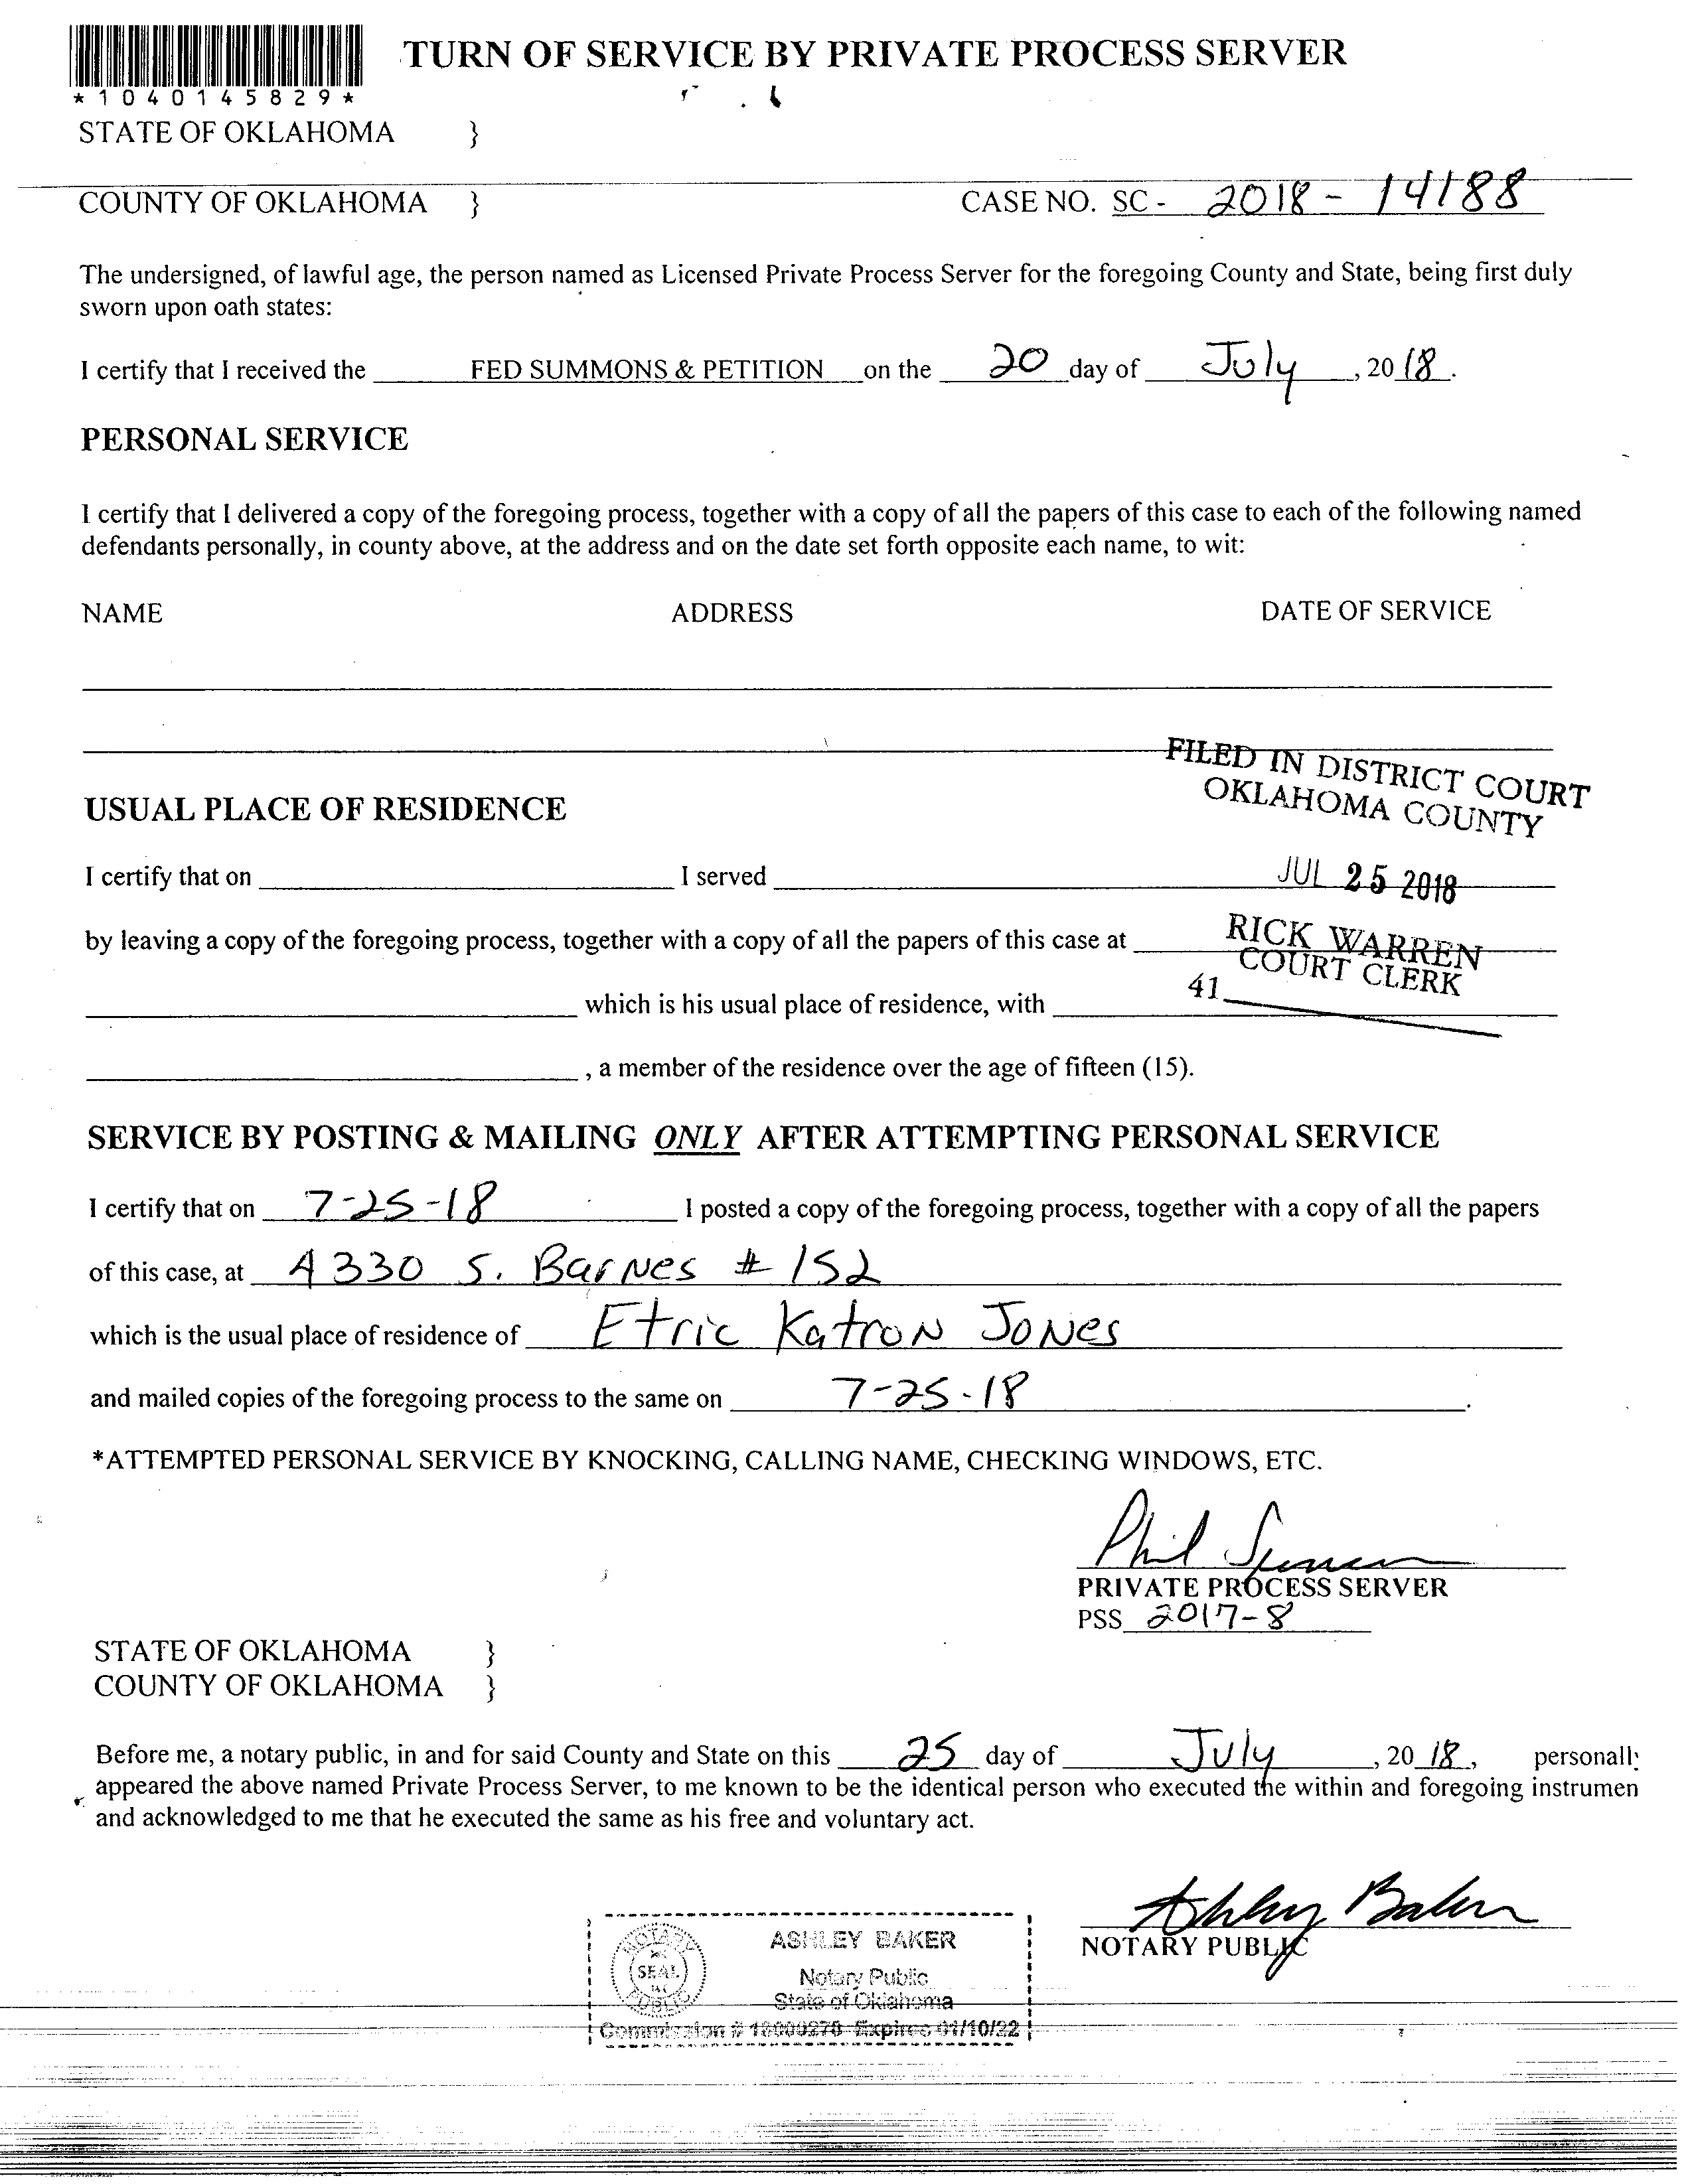 TURN OF SERVICE BY PRIVATE PROCESS SERVER
*1040145829*
STATE OF OKLAHOMA }
COUNTY OF OKLAHOMA } CASE NO. SC - 2018 - 14188
The undersigned, of lawful age, the person named as Licensed Private Process Server for the foregoing County and State, being first duly
sworn upon oath states:
I certify that I received the FED SUMMONS & PETITION on the 20 day of July , 20 18 .
PERSONAL SERVICE
I certify that I delivered a copy of the foregoing process, together with a copy of all the papers of this case to each of the following named
defendants personally, in county above, at the address and on the date set forth opposite each name, to wit:
NAME ADDRESS DATE OF SERVICE
FILED IN DISTRICT COURT
OKLAHOMA COUNTY
USUAL PLACE OF RESIDENCE
I certify that on I served
JUL 25 2018
by leaving a copy of the foregoing process, together with a copy of all the papers of this case at
RICK WARREN
COURT CLERK
41
which is his usual place of residence, with
, a member of the residence over the age of fifteen (15).
SERVICE BY POSTING & MAILING ONLY AFTER ATTEMPTING PERSONAL SERVICE
I certify that on 7-25-18 I posted a copy of the foregoing process, together with a copy of all the papers
of this case, at 4330 S. Barnes # 152
which is the usual place of residence of Etric Katron Jones
and mailed copies of the foregoing process to the same on 7-25-18 .
*ATTEMPTED PERSONAL SERVICE BY KNOCKING, CALLING NAME, CHECKING WINDOWS, ETC.
Phil
PRIVATE PROCESS SERVER
PSS 2017-8
STATE OF OKLAHOMA }
COUNTY OF OKLAHOMA }
Before me, a notary public, in and for said County and State on this 25 day of July , 20 18 , personall
appeared the above named Private Process Server, to me known to be the identical person who executed the within and foregoing instrumen
and acknowledged to me that he executed the same as his free and voluntary act.
Ashley Baker
NOTARY PUBLIC
NOTARY
SEAL
PUBLIC
ASHLEY BAKER
Notary Public
State of Oklahoma
Commission # 18000278 Expires 01/10/22